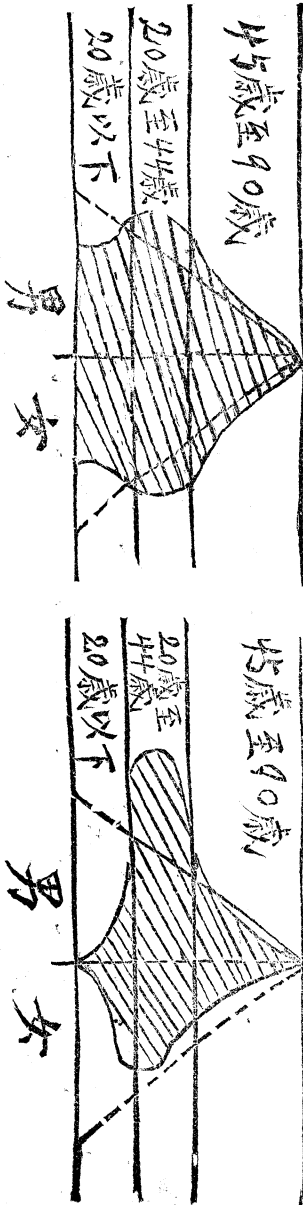 45歲至90歲
20歲至44歲
20歲以下
男
女
45歲至90歲
20歲至
44歲
20歲以下
男
女